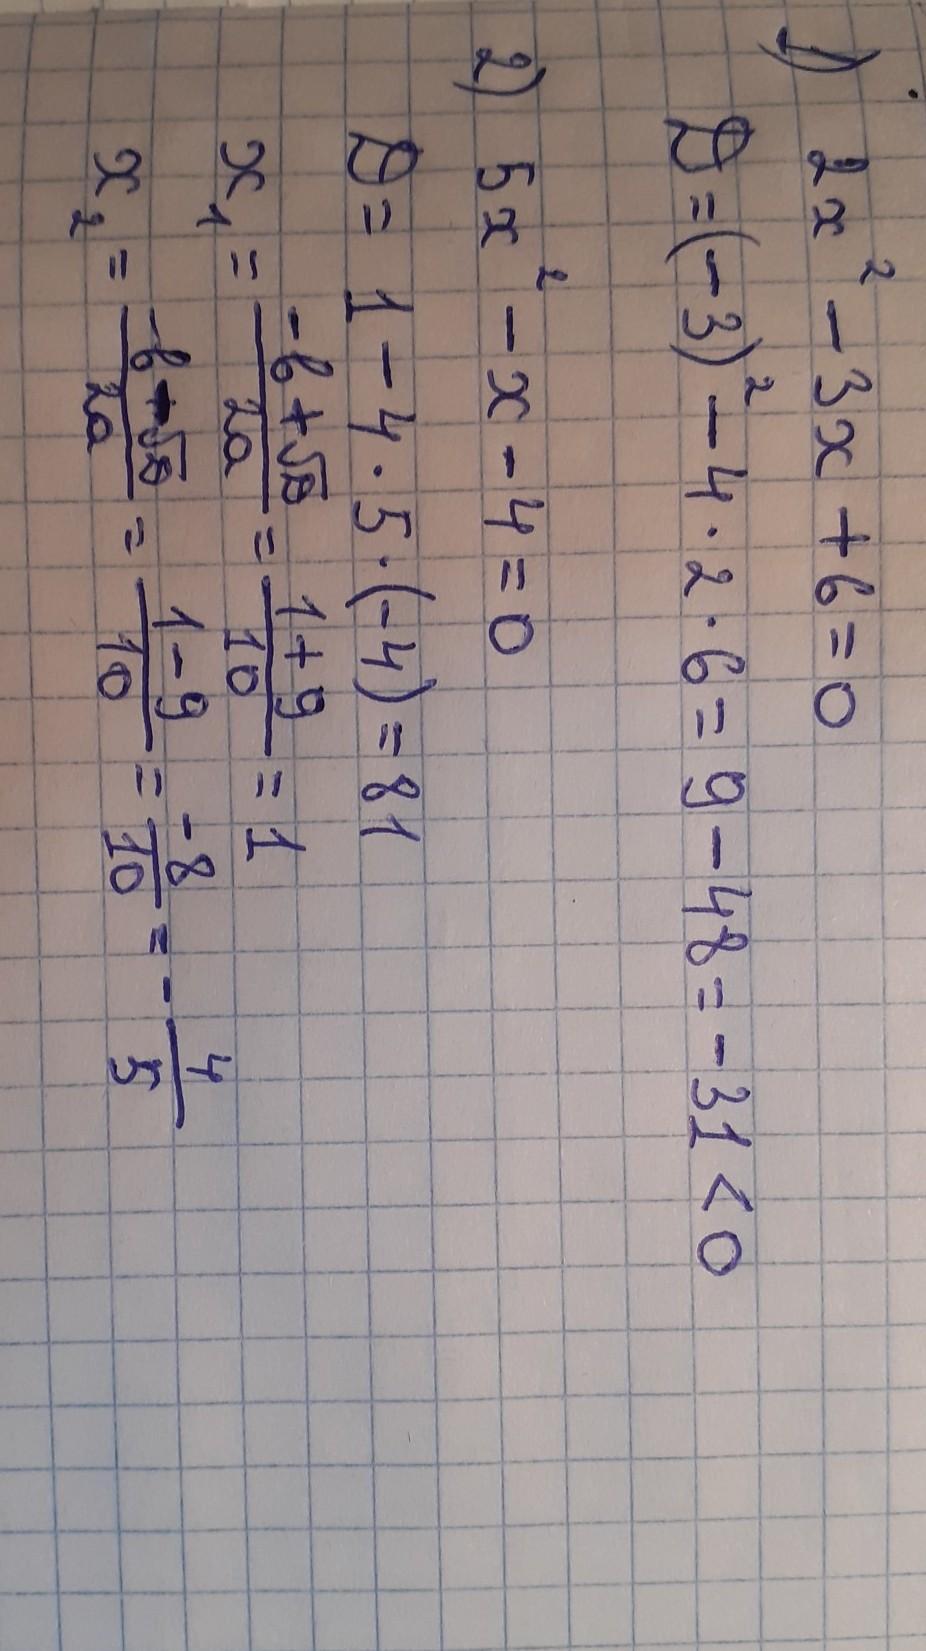 1) 2x² - 3x + 6 = 0
D = (-3)² - 4 · 2 · 6 = 9 - 48 = -31 < 0
2) 5x² - x - 4 = 0
D = 1 - 4 · 5 · (-4) = 81
x₁ = (-b + √D)/(2a) = (1 + 9)/10 = 1
x₂ = (-b - √D)/(2a) = (1 - 9)/10 = -8/10 = -4/5